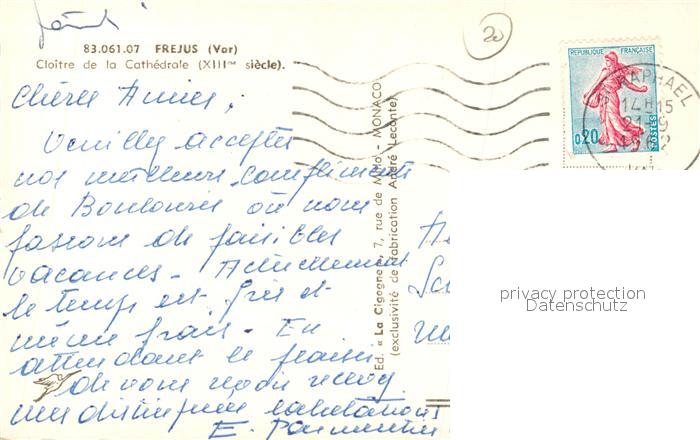 83.061.07 FREJUS (Var)
Cloître de la Cathédrale (XIIIme siècle).
20
REPUBLIQUE FRANÇAISE
0,20
POSTES
RAPHAEL
14H15
21-9
1962
Chères Amies,
Veuillez accepter
nos meilleurs compliments
de Boulouris où nous
passons de paisibles
vacances - Actuellement
le temps est gris et
même frais. En
attendant le plaisir
de vous revoir recevez
mes distinguées salutations
E. Parmentier
Ed. « La Cigogne », 7, rue de Millo, MONACO
(exclusivité de fabrication André Leconte)
privacy protection
Datenschutz